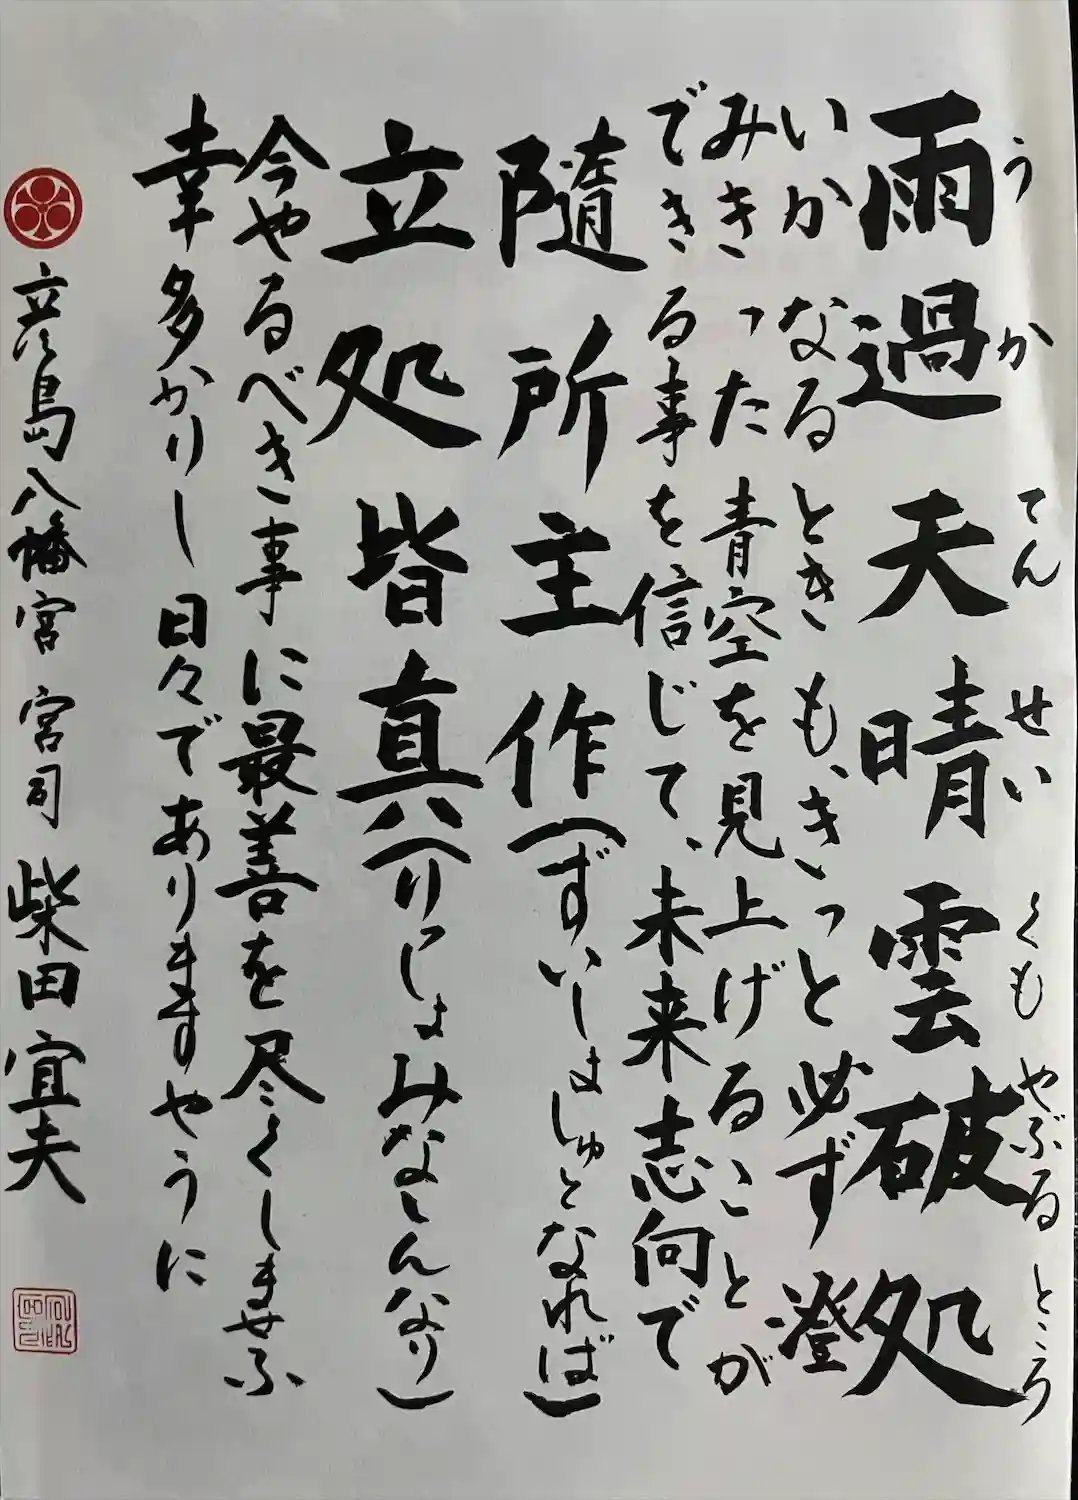 うか てんせい くもやぶるところ
雨過天晴雲破処
いかなるときも、きっと必ず澄
みきった青空を見上げることが
できる事を信じて、未来志向で
随所主作(ずいしょしゅとなれば)
立処皆真(りっしょみなしんなり)
今やるべき事に最善を尽くしませふ
幸多かりし日々でありますやうに
彦島八幡宮 宮司 柴田宜夫